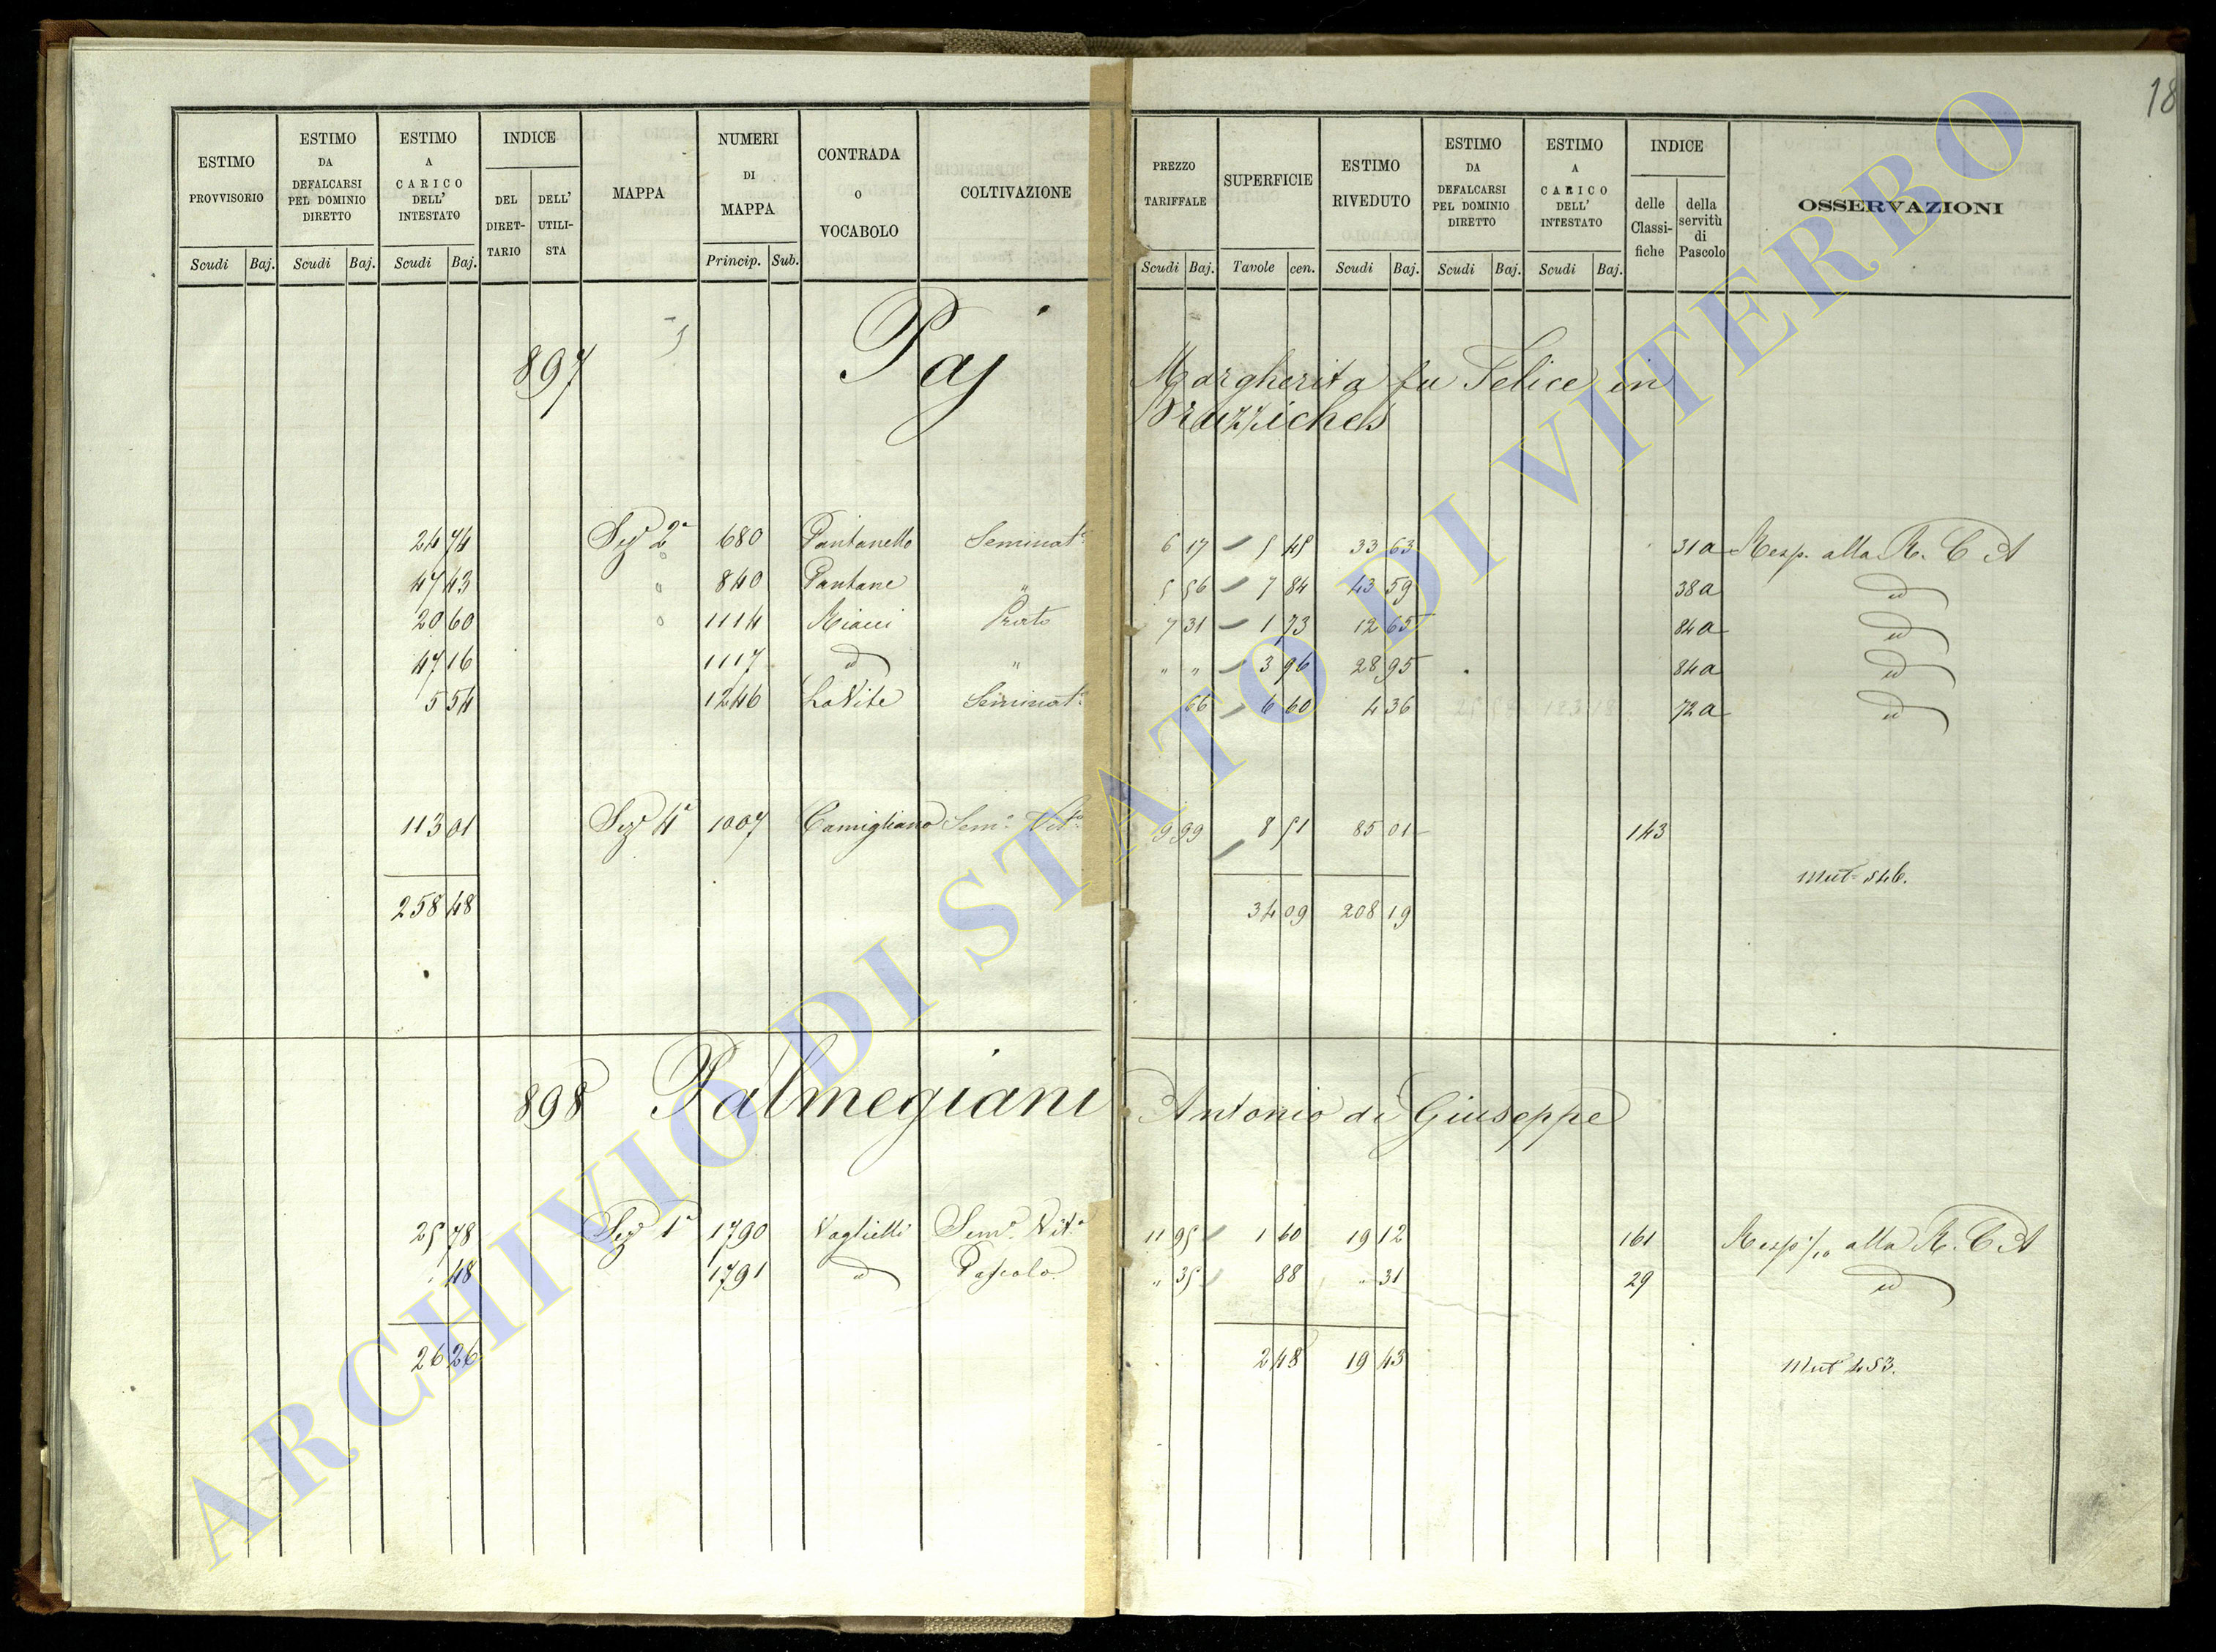 18
ESTIMO PROVVISORIO | ESTIMO DA DEFALCARSI PEL DOMINIO DIRETTO | ESTIMO A CARICO DELL' INTESTATO | INDICE DEL DIRETTARIO | DELL' UTILISTA | MAPPA | NUMERI DI MAPPA | CONTRADA o VOCABOLO | COLTIVAZIONE | PREZZO TARIFFALE | SUPERFICIE | ESTIMO RIVEDUTO | ESTIMO DA DEFALCARSI PEL DOMINIO DIRETTO | ESTIMO A CARICO DELL' INTESTATO | INDICE delle Classifiche | della servitù di Pascolo | OSSERVAZIONI
Scudi Baj. Scudi Baj. Scudi Baj. Princip. Sub. Scudi Baj. Tavole cen. Scudi Baj. Scudi Baj. Scudi Baj.
897 Paj Margherita fu Felice in
24 74 Sez 2a 680 Pantanello Seminato 6 17 5 45 33 63 31a Resp. alla R. C A
47 43 " 840 Pantane " 5 56 7 84 43 59 38a id
20 60 " 1114 Riacci Prato 7 31 1 73 12 65 84a id
47 16 1117 id " " " 3 96 28 95 84a id
5 54 1246 La Vite Seminato 66 6 60 4 36 72a id
113 01 Sez 4a 1007 Camigliano Semo Vito 9 99 8 51 85 01 143
Mut 546.
258 48 34 09 208 19
898 Palmegiani Antonio di Giuseppe
25 78 Sez 1a 1790 Vaglielli Semo Vito 11 95 1 60 19 12 161 Resp 1/10 alla R. C A
48 1791 id Pascolo " 35 88 " 31 29 id
26 26 2 48 19 43 Mut 453.
ARCHIVIO DI STATO DI VITERBO